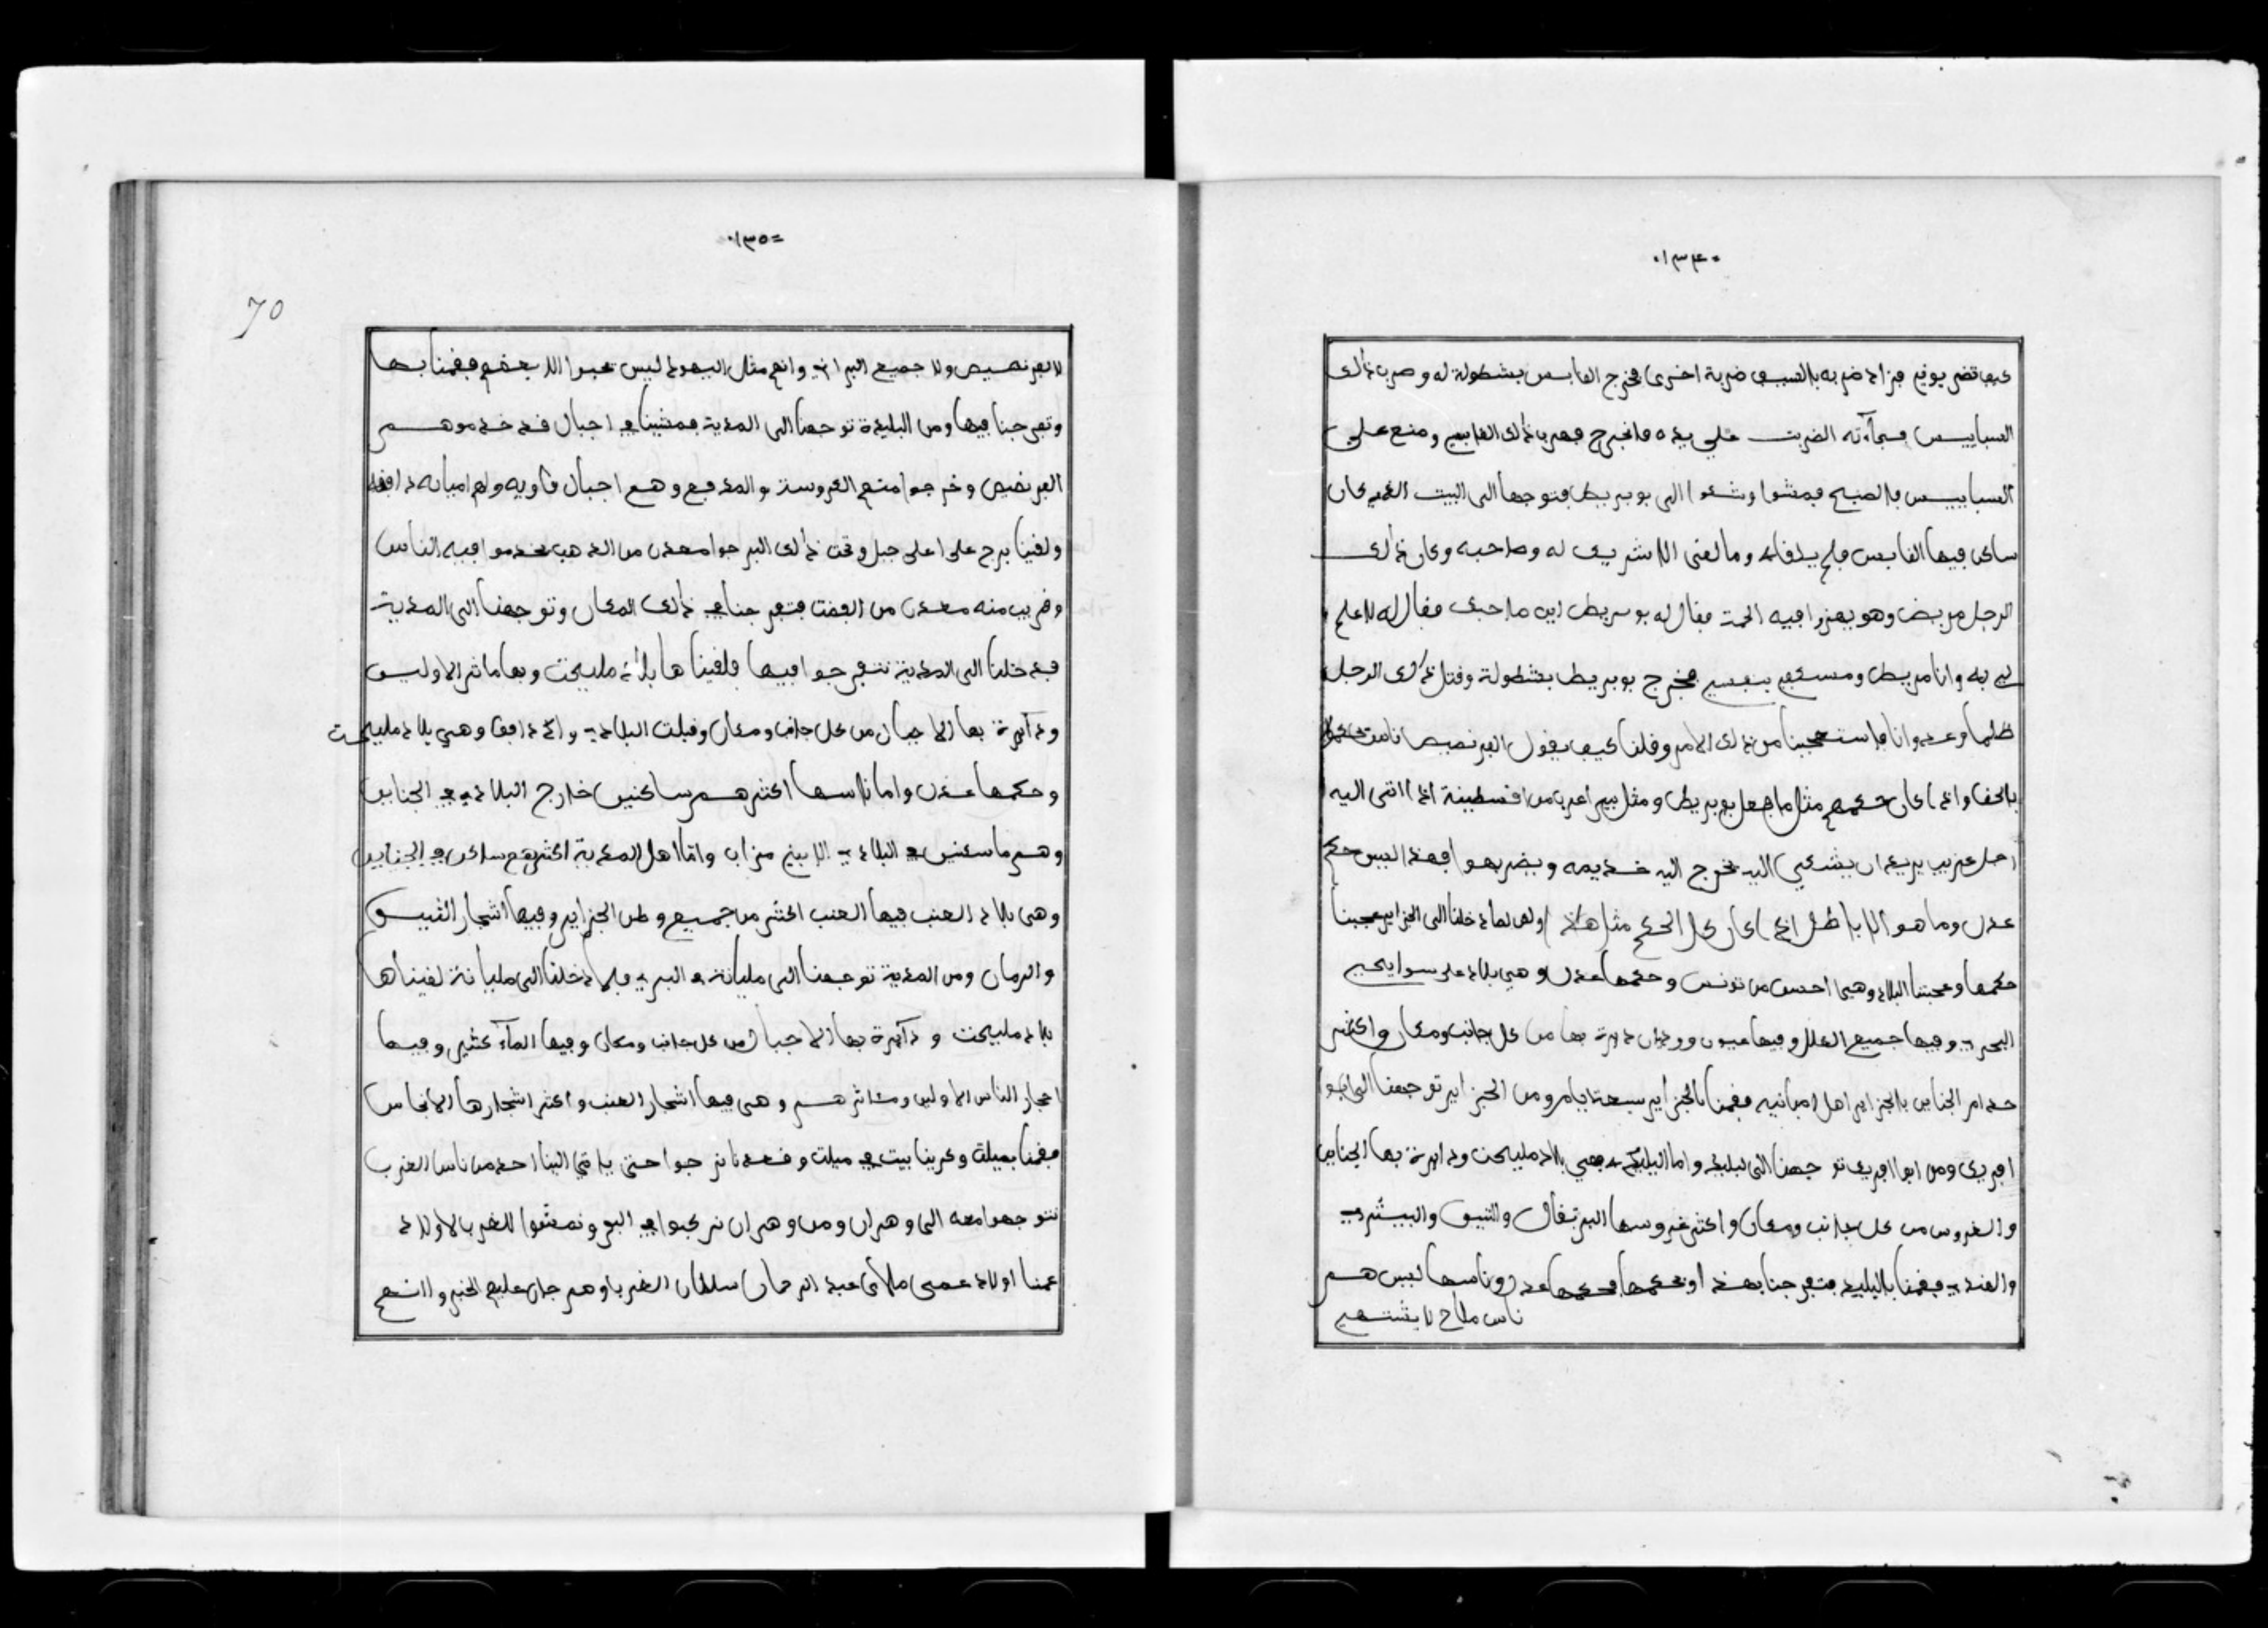 ٠١٣٤٠
كيف قضر يوقع فزاد ضربه بالسيف ضربة اخرى فخرج الفابس بشطولة له وضرب ذالك
السبايس فجاءته الضربت على يده فانجرح فهرب ذالك الفابس ومنع على
السبايس فالصبح فمشوا وشكوا الى بوبريط فتوجها الى البيت الذي كان
ساكن فيها الفابس فلم يلفاه وما لفى الا شريك له وصاحبه وكان ذالك
الرجل مريض وهو يهزوا فيه الحمة ففال له بوبريط اين صاحبك ففال له لا علم
لي به وانا مريض ومستعفي بنفسي فخرج بوبريط بشطولة وفتل ذالك الرجل
ظلما وعدوانا فاستعجبنا من ذالك الامر وفلنا كيف يفول الفرنصيص انا نحكموا
بالحف واذا كان حكمهم مثل ما فعل بوبريط ومثل بير اعرب من افسطينة اذا اتى اليه
رجل غريب يريد ان يشتكي اليه يخرج اليه خديمه ويضربهوا فهذا ليس حكم
عدل وما هو الا باطل اذا كان كل الحكم مثل هاذ ولكن لما دخلنا الى الجزاير عجبنا
حكمها وعجبتنا البلاد وهي احسن من تونس وحكمها عدل وهي بلاد على سوايحي
البحر وفيها جميع الغلل وفيها عيون ووديان دايرة بها من كل جانب ومكان واكثر
خدام الجناين بالجزاير اهل امبانيه ففمنا بالجزاير سبعة ايام ومن الجزاير توجهنا الى ابوا
افريك ومن ابوا افريك توجهنا الى لبليدة واما البليدة فهي بلاد مليحت ودايرة بها الجناين
والغروس من كل جانب ومكان واكثر غروسها البرتفال والتيق والبيشر
والفند ففمنا بالبليدة فتفرجنا بهذا وبحكمها فحكمها عدل وناسها ليس هم
ناس ملاح لا يشتهي
٠١٣٥=
70
لا الفرنصيص ولا جميع البراني وانهم مثل اليهود ليس يحبوا الا بعضهم ففمنا بها
وتفرجنا فيها ومن البليدة توجهنا الى المدية فمشينا في اجبال فد خدموهم
الفرنصيص وخرجوا متهم العروسة والمدفع وهم اجبال فاويه ولهم اميانه دافقة
ولفينا برج على اعلى جبل وتحت ذالك البرجوا معدن من الذهب يخدموا فيه الناس
وفريب منه معدن من الفضت فتفرجنا في ذالك المكان وتوجهنا الى المدية
فدخلنا الى المدية نتفرجوا فيها فلفيناها بلاد مليحت وبها ماثر الاوليس
ودآيرة بها الاجبال من كل جانب ومكان وفبلت البلاد وادد افف وهي بلاد مليحت
وحكمها عدل واما ناسها اكثرهم ساكنين خارج البلاد في الجناين
وهم ما سكنين في البلاد الا بني مزاب واما اهل المدية اكثرهم ساكن في الجناين
وهي بلاد العنب فيها العنب اكثر من جميع وطن الجزاير وفيها اشجار التيق
والرمان ومن المدية توجهنا الى مليانة في البر فلما دخلنا الى مليانة لفيناها
بلاد مليحت ودآيرة بها الاجبال من كل جانب ومكان وفيها المآء كثير وفيها
احجار الناس الاولين وماثرهم وهي فيها اشجار العنب واكثر اشجارها الانجاس
ففمنا بميلة وكرينا بيت في ميلت وفعدنا نرجوا حتى ياتي الينا احد من ناس الغرب
نتوجهوا معه الى وهران ومن وهران نركبوا في البحر ونمشوا للغرب الاولاد
عمنا اولاد عمى ملاي عبد الرحمان سلطان الغرب وهم جان عليهم الخبر وانهم